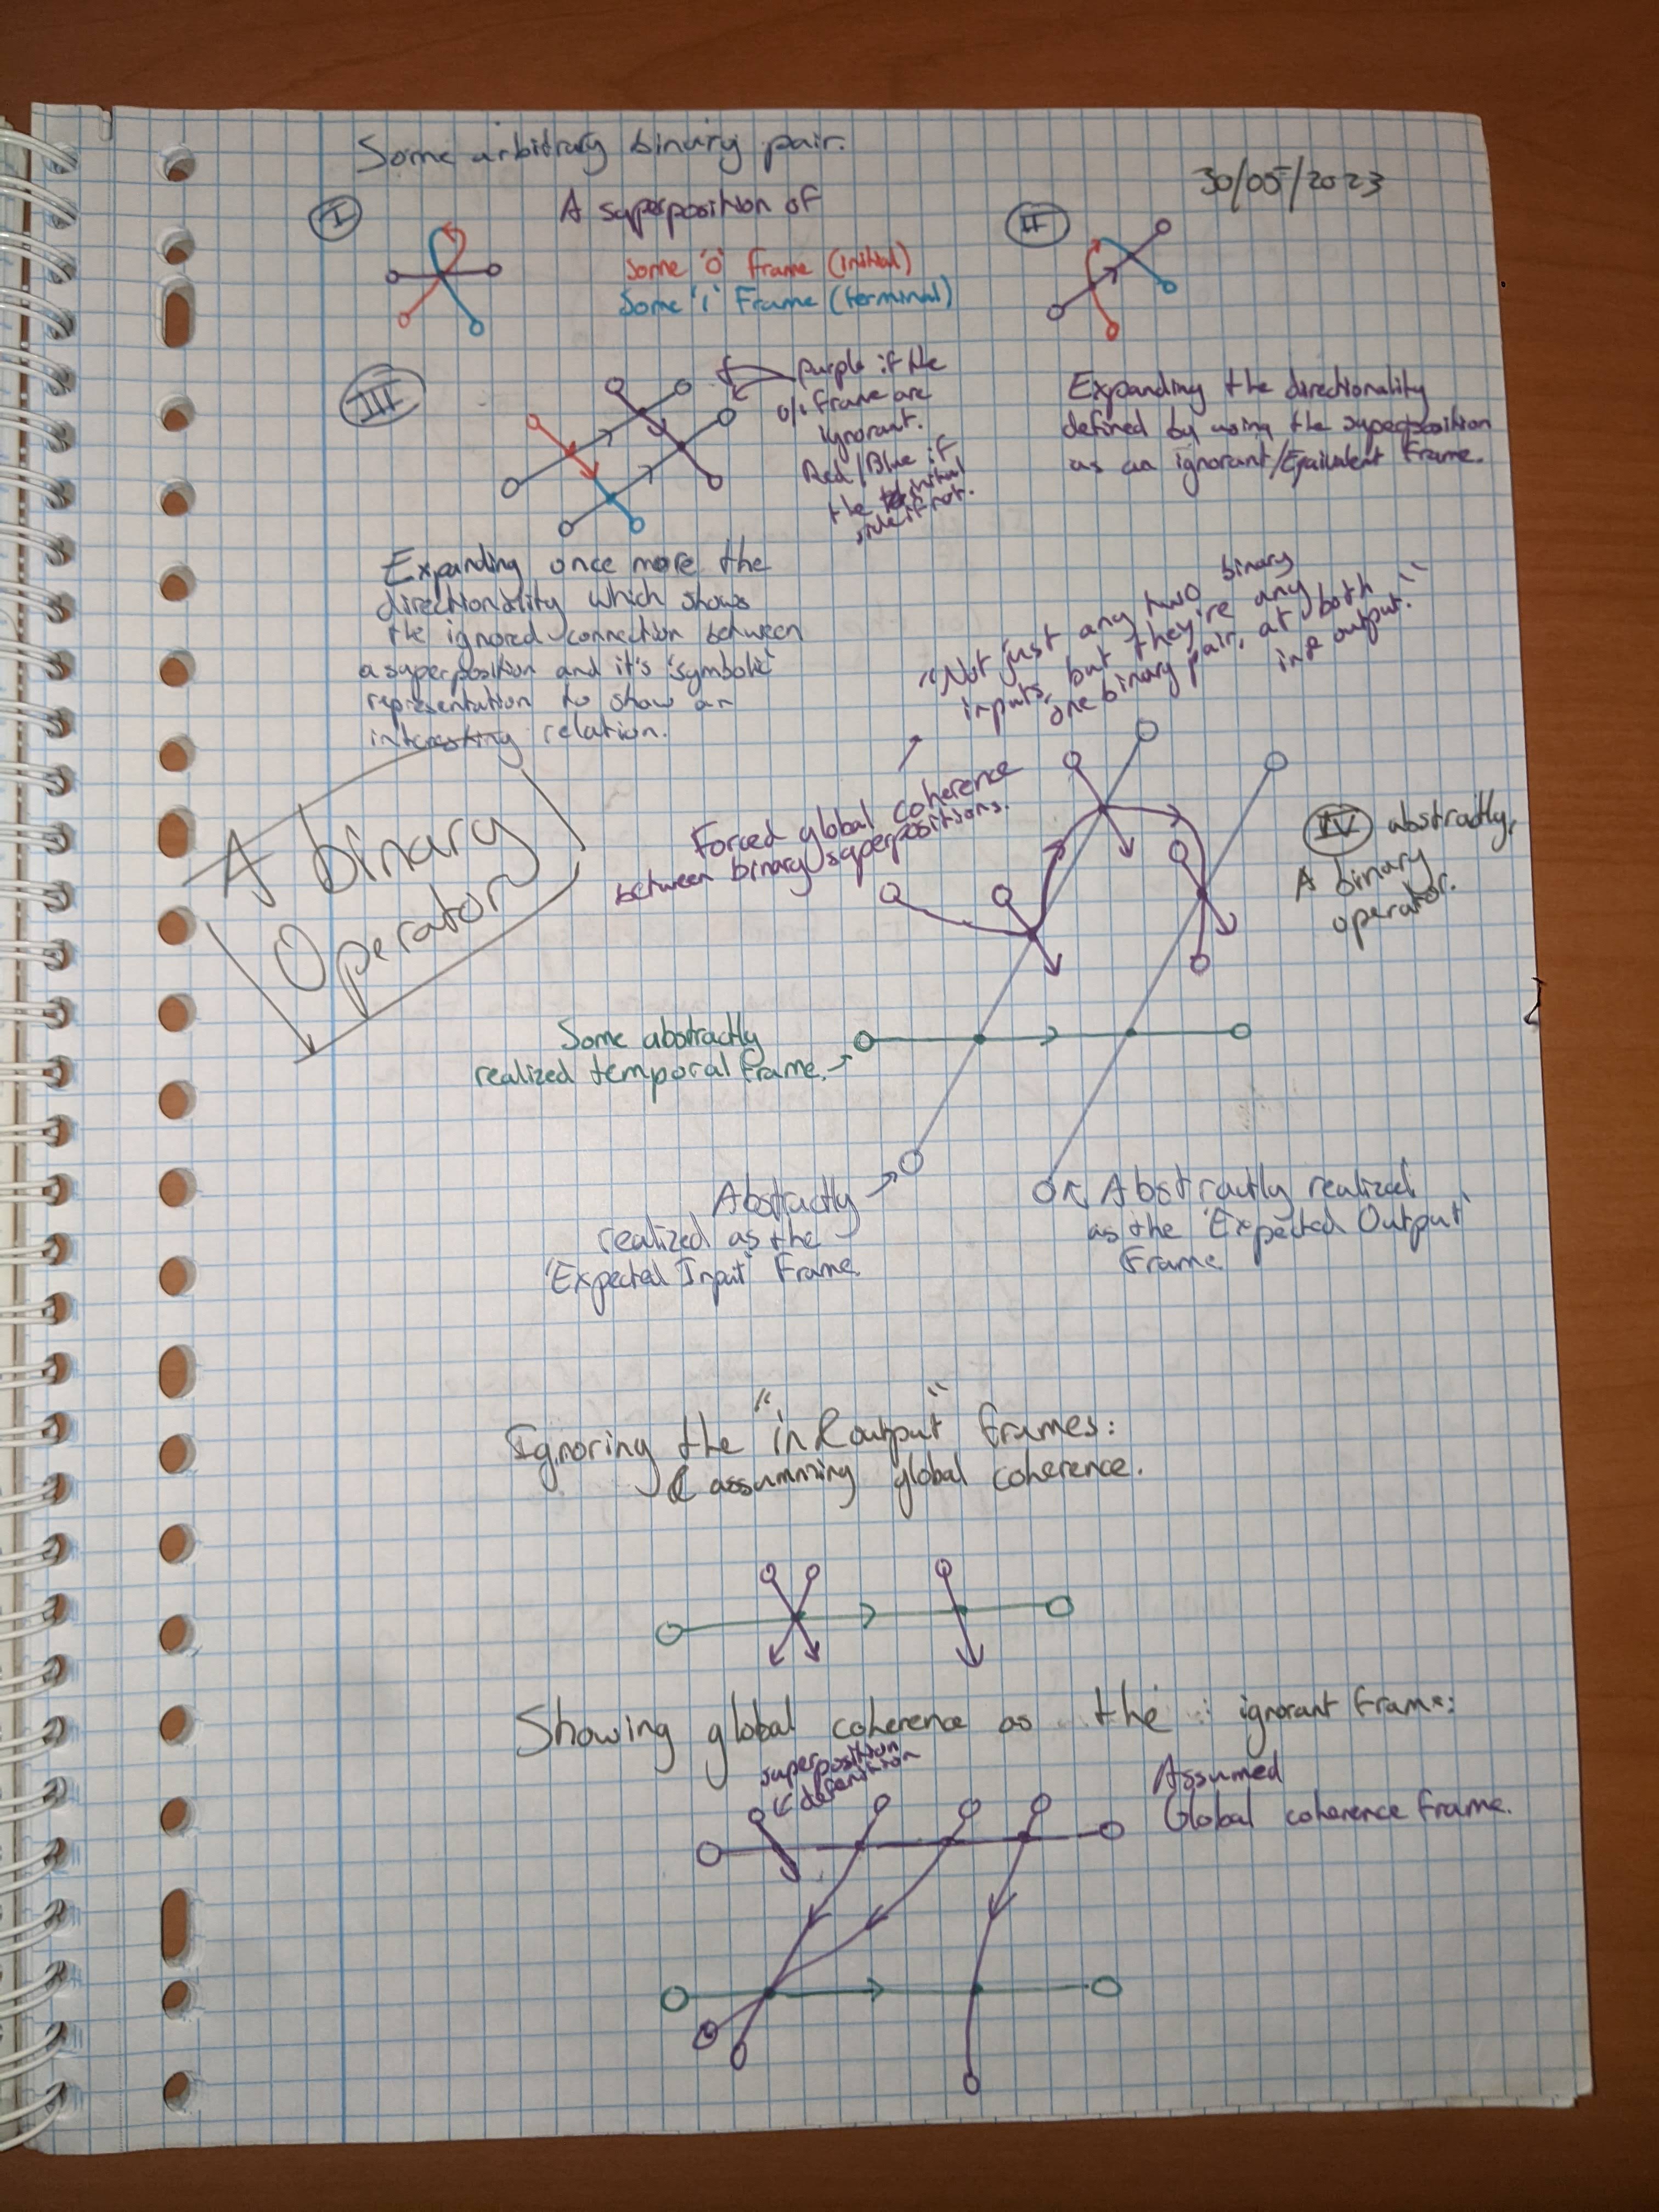 Some arbitrary binary pair.
30/05/2023
I
A superposition of
Some '0' Frame (initial)
Some '1' Frame (terminal)
II
Expanding the directionality
defined by using the superposition
as an ignorant/Equivalent Frame.
III
purple if the
0/1 Frame are
ignorant.
Red/Blue if
the initial
side if not.
Expanding once more the
directionality which shows
the ignored connection between
a superposition and it's 'symbolic'
representation to show an
interesting relation.
A binary
Operator
"Not just any two binary
inputs, but they're any
one binary pair, at both
in & output."
Forced global coherence
between binary superpositions.
IV abstractly,
A binary
operator.
Some abstractly
realized temporal frame.
Abstractly
realized as the
'Expected Input' Frame.
Abstractly realized
as the 'Expected Output'
Frame.
Ignoring the "in & output" frames:
& assumming global coherence.
Showing global coherence as the ignorant frame:
superposition
definition
Assumed
Global coherence frame.